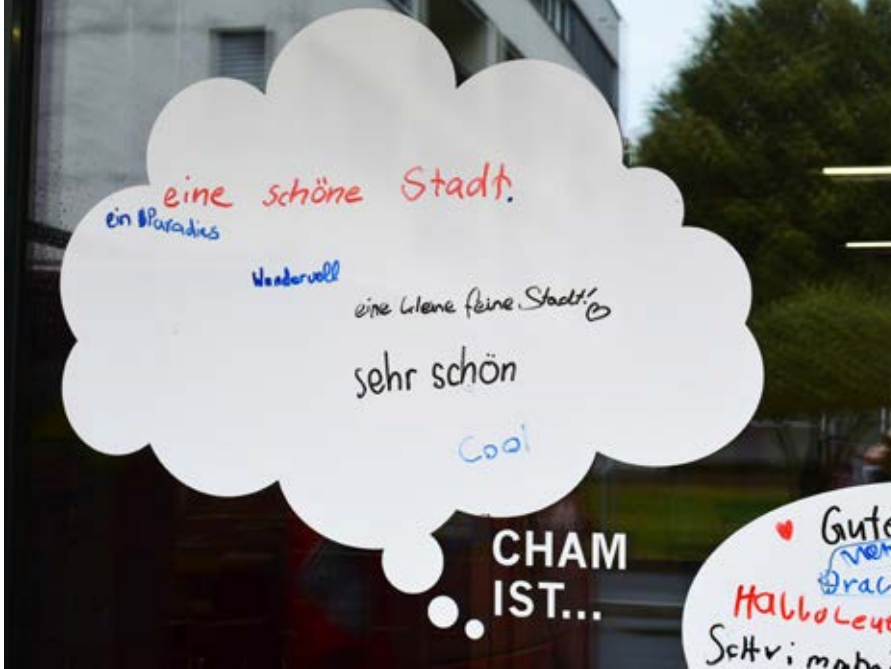 eine schöne Stadt.
ein Paradies
Wundervoll
eine kleine feine Stadt!
sehr schön
Cool
CHAM
IST...
Hallo Leut